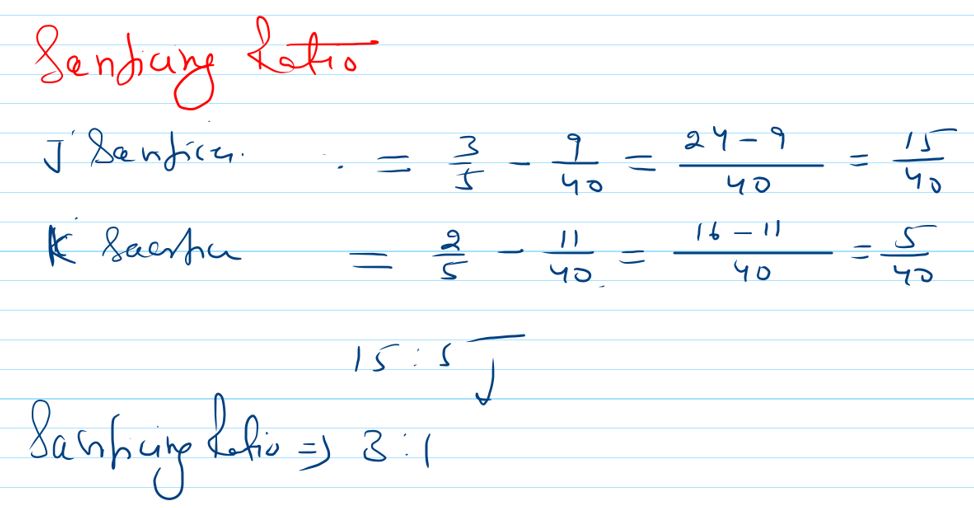 Sacrificing Ratio
J Sacrifice = 3/5 - 9/40 = 24-9/40 = 15/40
K Sacrifice = 2/5 - 11/40 = 16-11/40 = 5/40
15 : 5
Sacrificing Ratio => 3 : 1